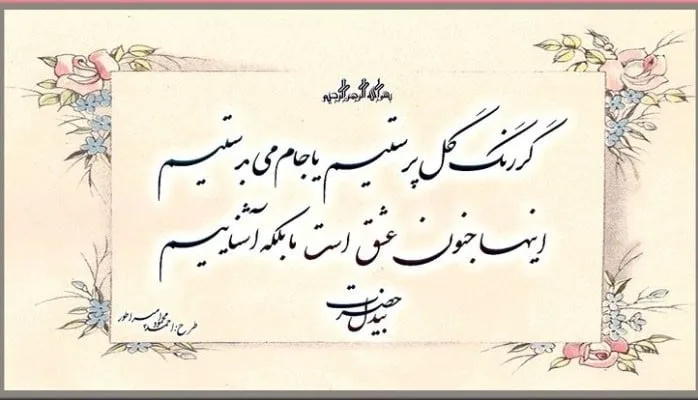 بسم الله الرحمن الرحیم
گر رنگ گل پرستیم یا جام می بدستیم
اینها جنون عشق است ما بلکه آشناییم
حضرت بیدل
طرح: احمد محمود امپراطور